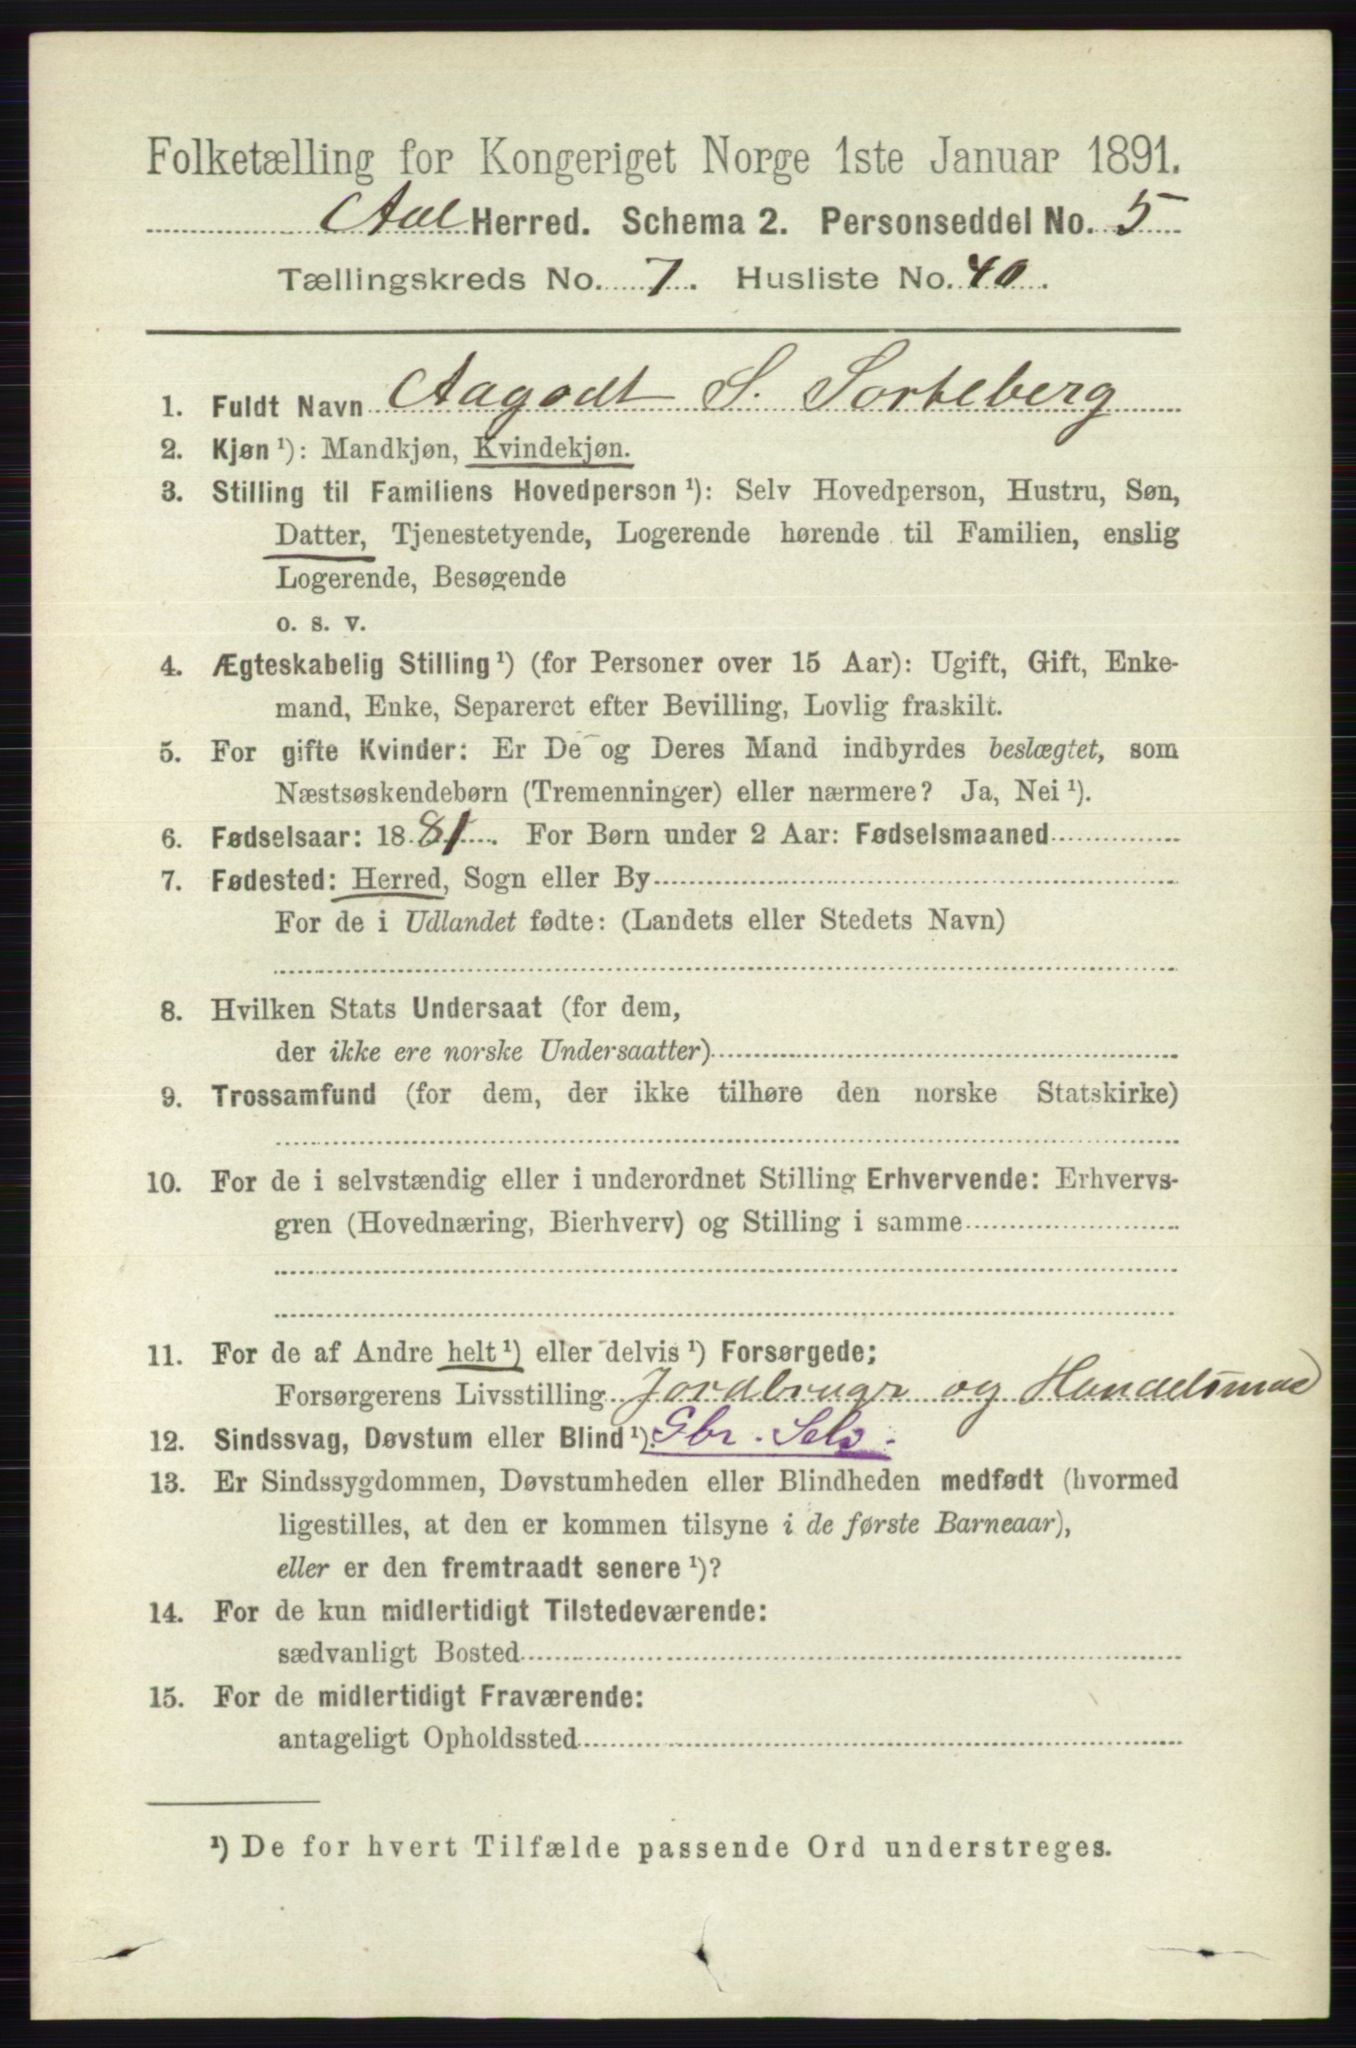 Folketælling for Kongeriget Norge 1ste Januar 1891.
Aal Herred. Schema 2. Personseddel No. 5
Tællingskreds No. 7. Husliste No. 40.
1. Fuldt Navn Aagodt S. Sorteberg
2. Kjøn ¹): Mandkjøn, Kvindekjøn.
3. Stilling til Familiens Hovedperson ¹): Selv Hovedperson, Hustru, Søn,
Datter, Tjenestetyende, Logerende hørende til Familien, enslig
Logerende, Besøgende
o. s. v.
4. Ægteskabelig Stilling ¹) (for Personer over 15 Aar): Ugift, Gift, Enke-
mand, Enke, Separeret efter Bevilling, Lovlig fraskilt.
5. For gifte Kvinder: Er De og Deres Mand indbyrdes beslægtet, som
Næstsøskendebørn (Tremenninger) eller nærmere? Ja, Nei ¹).
6. Fødselsaar: 1881. For Børn under 2 Aar: Fødselsmaaned
7. Fødested: Herred, Sogn eller By
For de i Udlandet fødte: (Landets eller Stedets Navn)
8. Hvilken Stats Undersaat (for dem,
der ikke ere norske Undersaatter)
9. Trossamfund (for dem, der ikke tilhøre den norske Statskirke)
10. For de i selvstændig eller i underordnet Stilling Erhvervende: Erhvervs-
gren (Hovednæring, Bierhverv) og Stilling i samme
11. For de af Andre helt ¹) eller delvis ¹) Forsørgede;
Forsørgerens Livsstilling Jordbrugr og Handelsmad
12. Sindssvag, Døvstum eller Blind ¹). Gbr. Selv.
13. Er Sindssygdommen, Døvstumheden eller Blindheden medfødt (hvormed
ligestilles, at den er kommen tilsyne i de første Barneaar),
eller er den fremtraadt senere ¹)?
14. For de kun midlertidigt Tilstedeværende:
sædvanligt Bosted
15. For de midlertidigt Fraværende:
antageligt Opholdssted
¹) De for hvert Tilfælde passende Ord understreges.